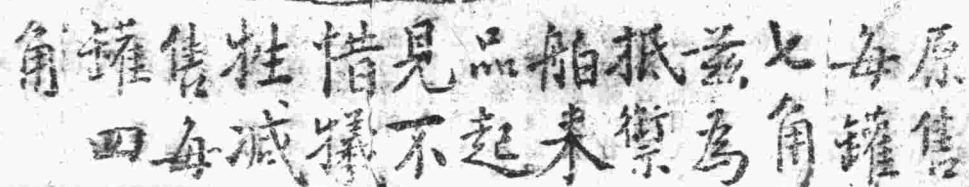 原售
每罐
七角
兹為
抵禦
舶来
品起
見不
惜犧
牲减
售每
罐四
角